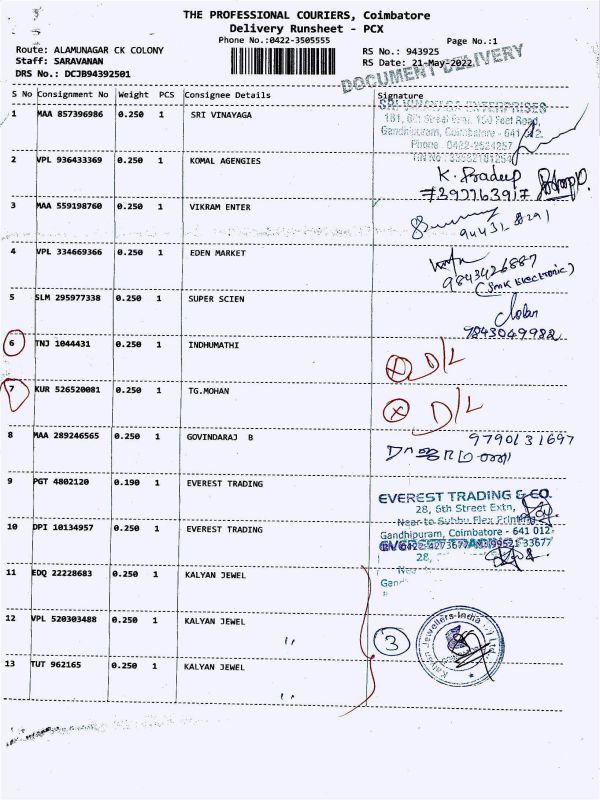 THE PROFESSIONAL COURIERS, Coimbatore
Delivery Runsheet - PCX
Phone No.:0422-3505555
Page No.:1
Route: ALAMUNAGAR CK COLONY
RS No.: 943925
Staff: SARAVANAN
RS Date: 21-May-2022
DRS No.: DCJB94392501
DOCUMENT DELIVERY
S No Consignment No Weight PCS Consignee Details Signature
1 MAA 857396986 0.250 1 SRI VINAYAGA
181, 6th Street Extn, 100 Feet Road,
Gandhipuram, Coimbatore - 641 012.
Phone : 0422-2524257
2 VPL 936433369 0.250 1 KOMAL AGENGIES
K. Pradeep
7397763917
3 MAA 559198760 0.250 1 VIKRAM ENTER
94431 8291
4 VPL 334669366 0.250 1 EDEN MARKET
9843426887
(SMK Electronic)
5 SLM 295977338 0.250 1 SUPER SCIEN
9843049982
6 TNJ 1044431 0.250 1 INDHUMATHI
X D/L
7 KUR 526520081 0.250 1 TG.MOHAN
X D/L
8 MAA 289246565 0.250 1 GOVINDARAJ B
9790131697
9 PGT 4802120 0.190 1 EVEREST TRADING
EVEREST TRADING & CO.
28, 6th Street Extn,
Near to Subbu Flex Printing
Gandhipuram, Coimbatore - 641 012.
10 DPI 10134957 0.250 1 EVEREST TRADING
28,
11 EDQ 22228683 0.250 1 KALYAN JEWEL
12 VPL 520303488 0.250 1 KALYAN JEWEL
"
3
Kalyan Jewellers-India
13 TUT 962165 0.250 1 KALYAN JEWEL
"